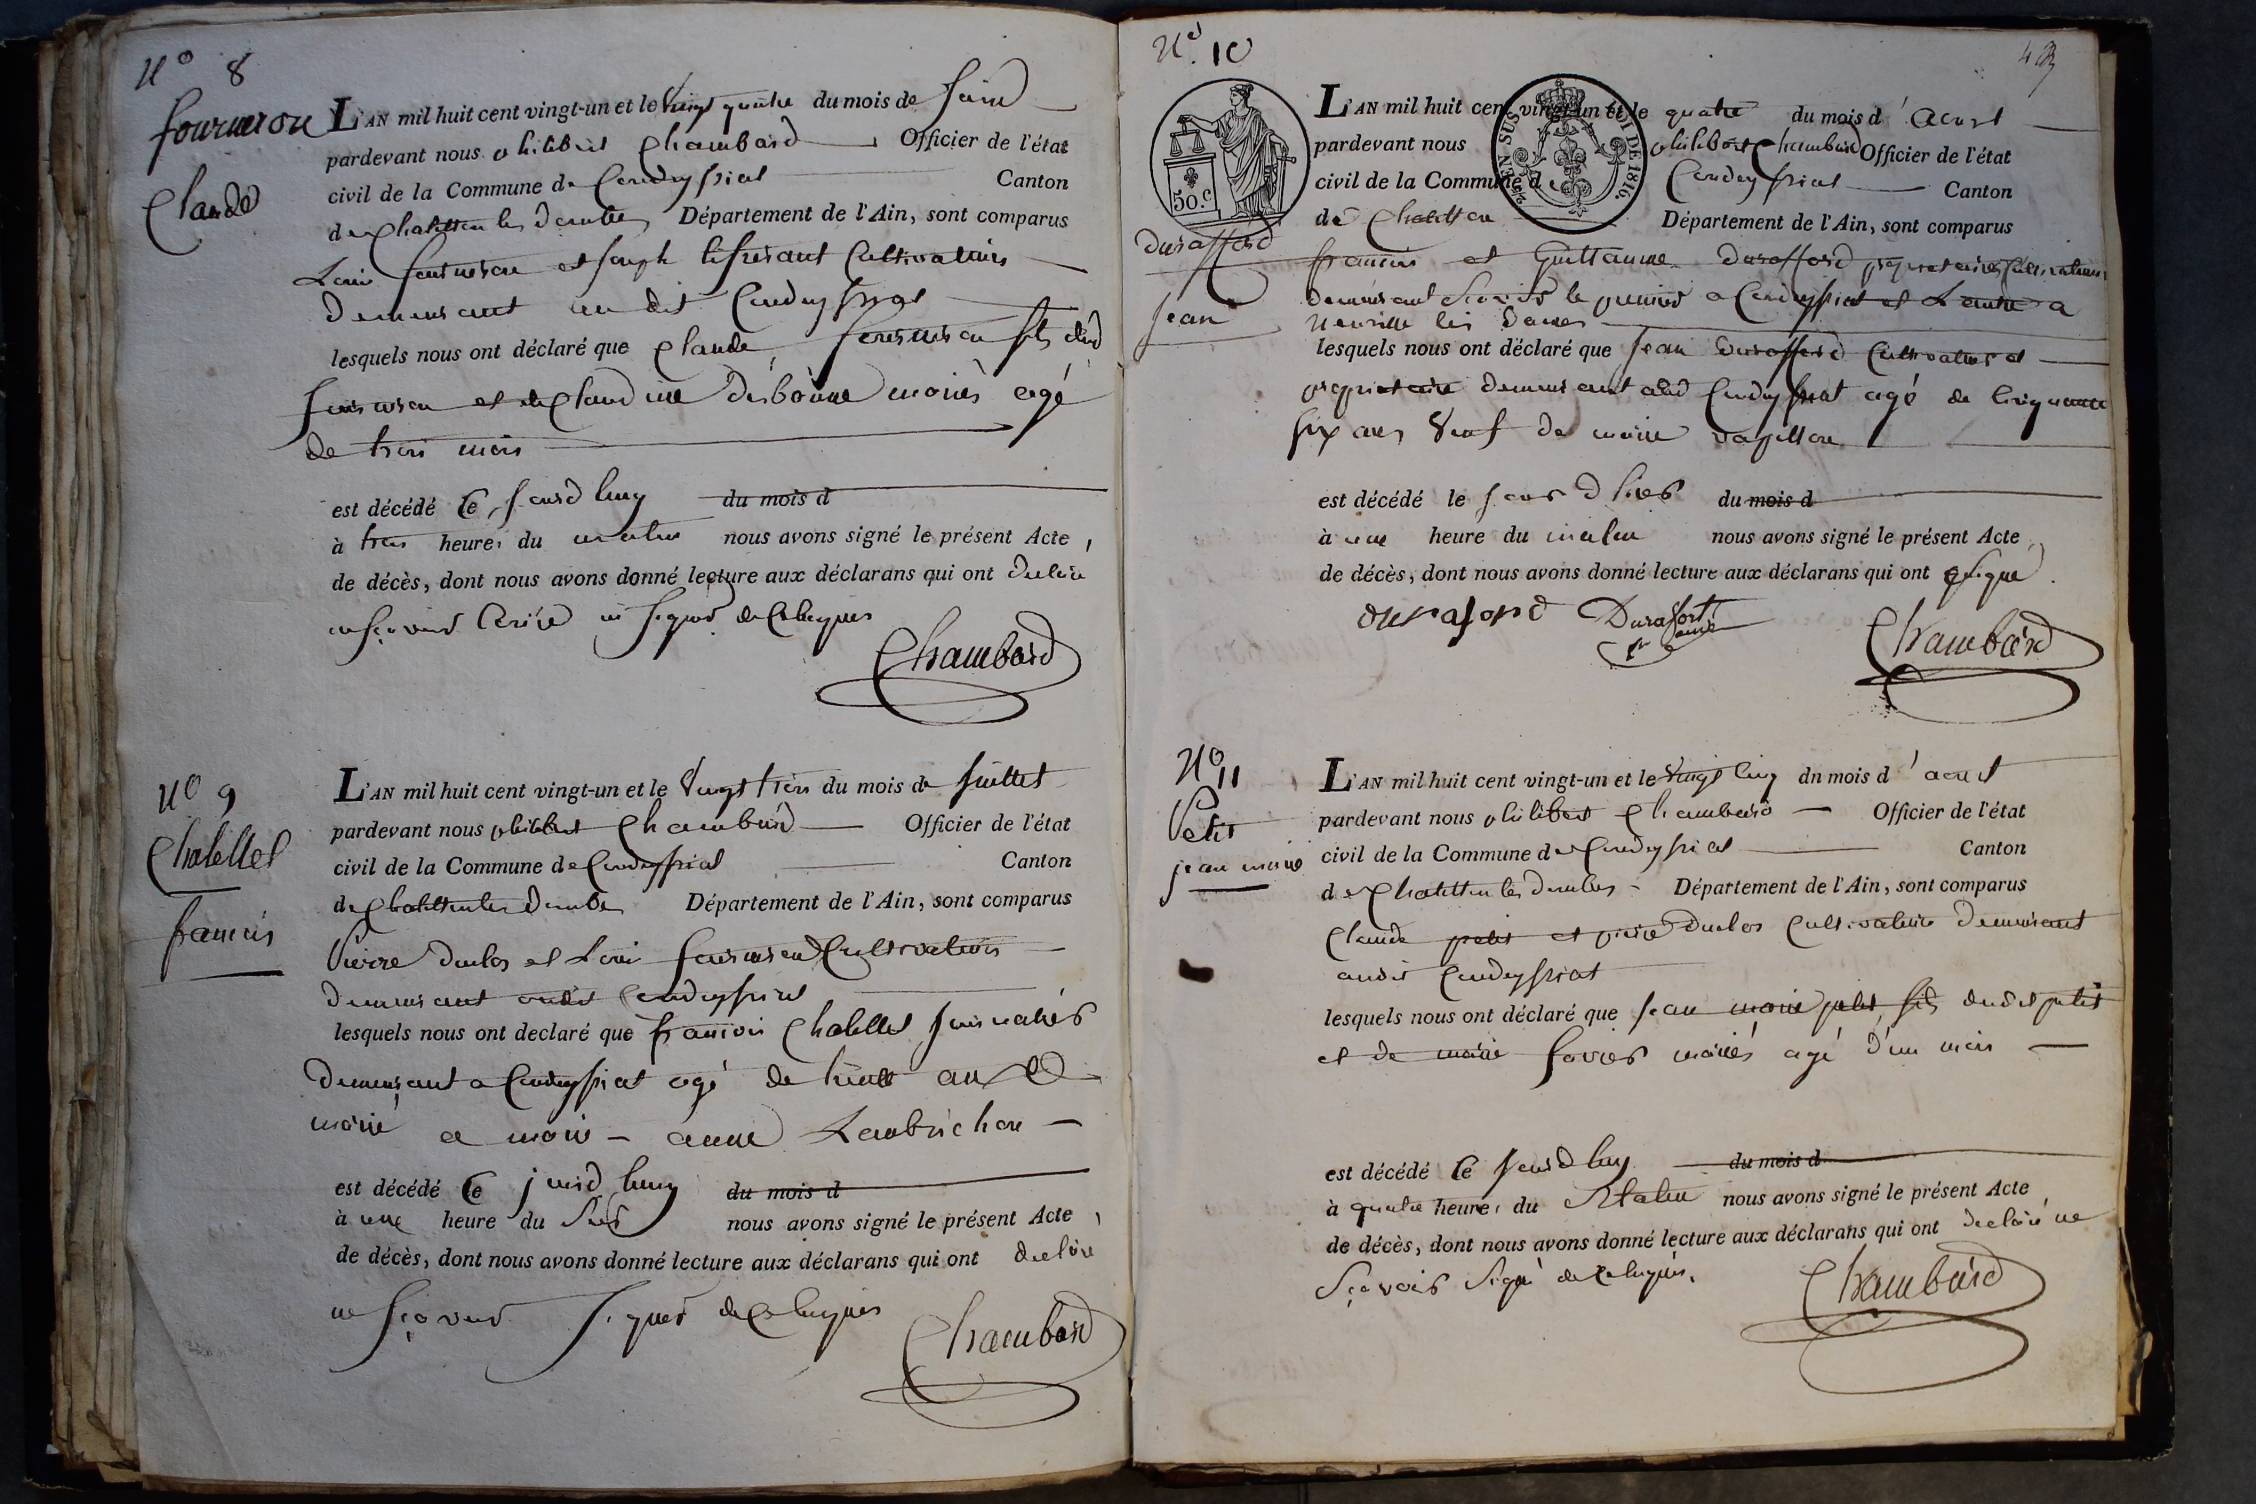 N.º 8
fournion
Claude
L'AN mil huit cent vingt-un et le vingt quatre du mois de juin
pardevant nous philibert Chambard Officier de l'état
civil de la Commune de Condeyssiat Canton
de Chatillon les dombes Département de l'Ain, sont comparus
Loui et joseph cultivateurs
demeurant au dit Condeyssiat
lesquels nous ont déclaré que Claude fils dud
et de Claudine mariés agé
de trois mois
est décédé ce jourd huy du mois d
à trois heures du matin nous avons signé le présent Acte,
de décès, dont nous avons donné lecture aux déclarans qui ont declaré
ne sçavoir ni signer de ce enquis
Chambard
N.º 9
Chatellet
francois
L'AN mil huit cent vingt-un et le vingt trois du mois de juillet
pardevant nous philibert Chambard Officier de l'état
civil de la Commune de Condeyssiat Canton
de Chatillon les dombes Département de l'Ain, sont comparus
Pierre duclos et Loui cultivateurs
demeurant audit Condeyssiat
lesquels nous ont declaré que francois Chatellet journalier
demeurant a Condeyssiat agé de ans
marié a marie - anne Laubrichon
est décédé ce jourd huy du mois d
à une heure du soir nous avons signé le présent Acte,
de décès, dont nous avons donné lecture aux déclarans qui ont declaré
ne sçavoir signer de ce enquis
Chambard
N.º 10
50.C
EN SUS
LOI DE 1816.
durafford
jean
L'AN mil huit cent vingt-un et le quatre du mois d'aoust
pardevant nous philibert Chambard Officier de l'état
civil de la Commune de Condeyssiat Canton
de Chatillon Département de l'Ain, sont comparus
francois et Guillaume durafford propriétaires cultivateurs
demeurant sçavoir le premier a Condeyssiat et L'autre a
neuville les dames
lesquels nous ont déclaré que jean durafford cultivateur et
propriétaire demeurant aud Condeyssiat agé de cinquante
six ans veuf de marie vapillon
est décédé le jour d hier du mois d
à une heure du matin nous avons signé le présent Acte
de décès, dont nous avons donné lecture aux déclarans qui ont signé
duraford Durafort
Chambard
N.º 11
Petit
jean marie
L'AN mil huit cent vingt-un et le vingt cinq du mois d'aoust
pardevant nous philibert Chambard Officier de l'état
civil de la Commune de Condeyssiat Canton
de Chatillon les dombes Département de l'Ain, sont comparus
Claude petit et pierre duclos cultivateurs demeurant
audit Condeyssiat
lesquels nous ont déclaré que jean marie petit fils dudit petit
et de marie mariés agé d'un mois
est décédé ce jourd huy du mois d
à quatre heures du matin nous avons signé le présent Acte,
de décès, dont nous avons donné lecture aux déclarans qui ont declaré ne
sçavoir signé de ce enquis.
Chambard